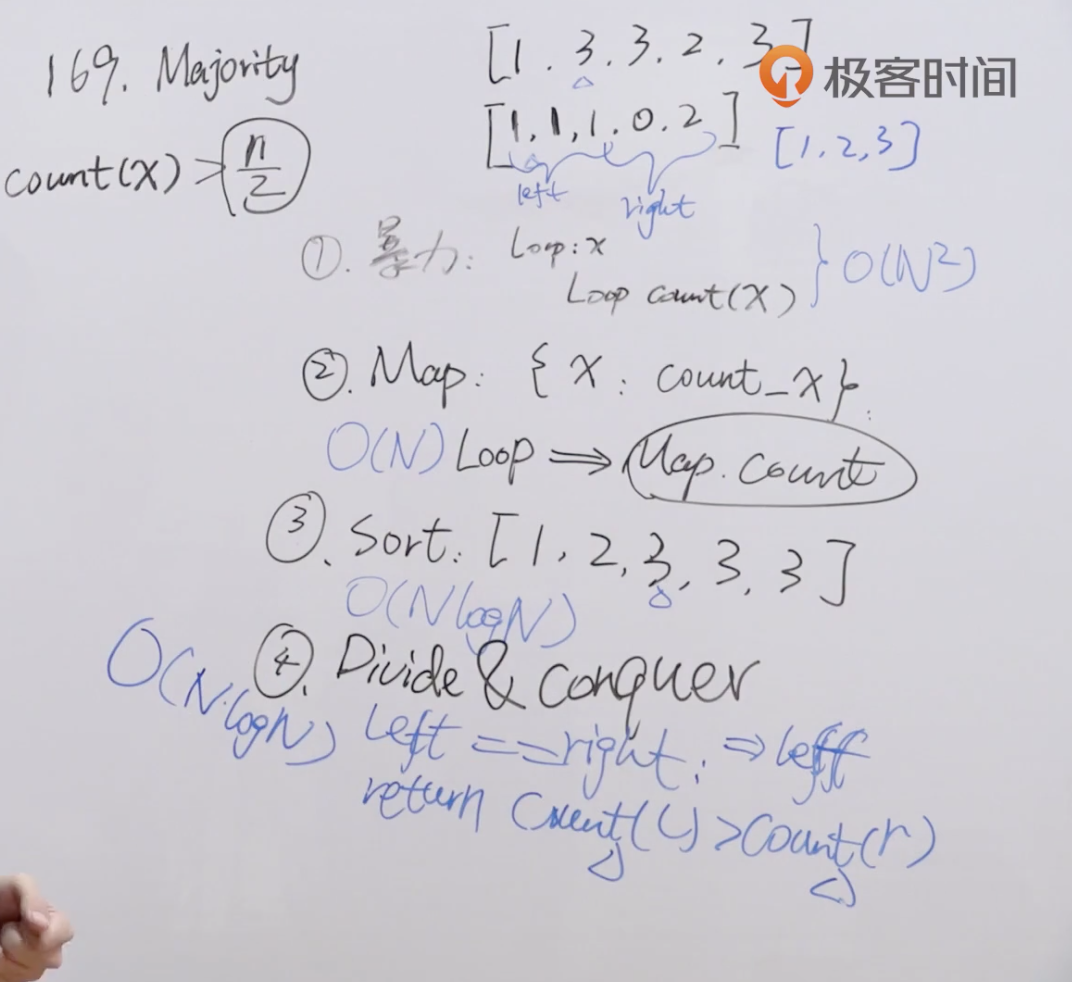 169. Majority
[1. 3. 3. 2. 3]
极客时间
[1, 1, 1. 0. 2]
[1. 2, 3]
count(x) > n/2
left right
①. 暴力: Loop: x
Loop count(x) } O(N²)
②. Map: {x: count_x}.
O(N) Loop ⇒ Map.count
③. Sort: [1, 2, 3, 3, 3]
O(NlogN)
④. Divide & conquer
O(N·logN)
left == right: ⇒ left
return Count(l) > Count(r)